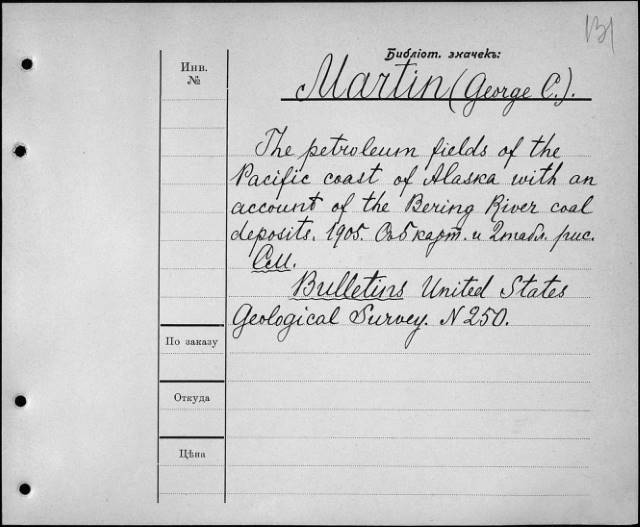 131
Библіот. значекъ:
Инв.
№
Martin (George C.).
The petroleum fields of the
Pacific coast of Alaska with an
account of the Bering River coal
deposits. 1905. Съ 5 карт. и 2 табл. рис.
См.
Bulletins United States
Geological Survey. N 250.
По заказу
Откуда
Цѣна